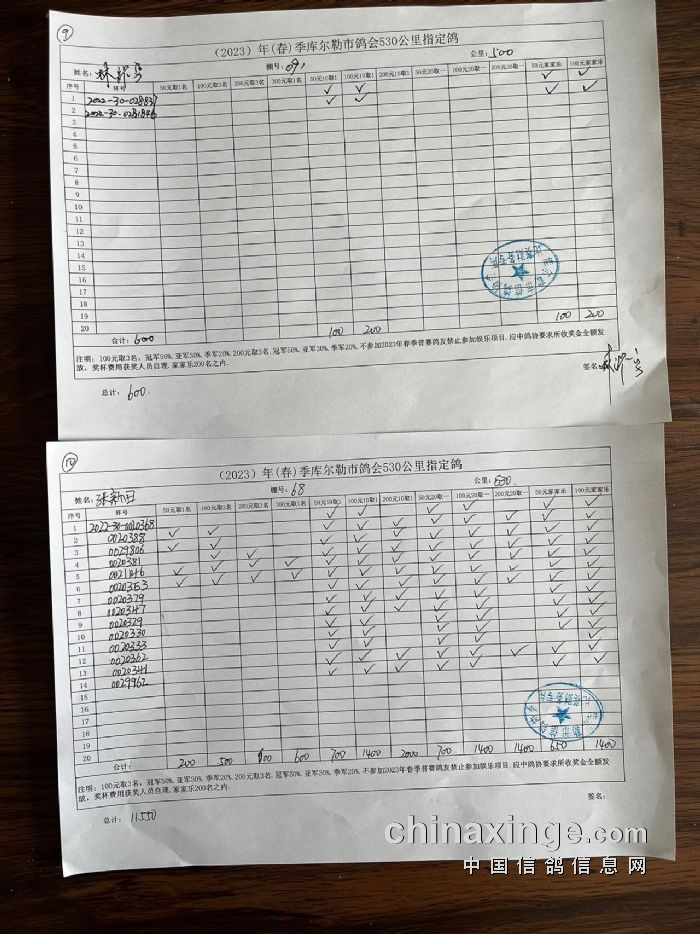 9
（2023）年（春）季库尔勒市鸽会530公里指定鸽
姓名： 棚号： 公里：500
序号 环号 50元取1名 100元取3名 200元取3名 300元取1名 50元10取1 100元10取1 200元10取1 50元20取一 100元20取一 200元20取一 50元家家乐 100元家家乐
1 2022-30- ✓ ✓ ✓ ✓
2 2022-30- ✓ ✓ ✓ ✓
3
4
5
6
7
8
9
10
11
12
13
14
15
16
17
18
19
20
合计：600 100 200 100 200
注明：100元取3名，冠军50%,亚军30%,季军20%,200元取3名,冠军50%,亚军30%,季军20%,不参加2023年春季普赛鸽友禁止参加娱乐项目.应中鸽协要求所收奖金全额发
放，奖杯费用获奖人员自理.家家乐200名之内.
总计：600 签名：
10
（2023）年（春）季库尔勒市鸽会530公里指定鸽
姓名： 棚号：68 公里：530
序号 环号 50元取1名 100元取3名 200元取3名 300元取1名 50元10取1 100元10取1 200元10取1 50元20取一 100元20取一 200元20取一 50元家家乐 100元家家乐
1 2022-30-0020368
2 0020388
3 0029806
4 0020381
5
6
7 0020379
8 0020347
9
10 0020330
11 0020333
12 0020362
13 0020341
14 0029962
15
16
17
18
19
20
合计： 200 500 600 700 1400 2000 700 1400 1400 650 1400
注明：100元取3名，冠军50%,亚军30%,季军20%,200元取3名,冠军50%,亚军30%,季军20%,不参加2023年春季普赛鸽友禁止参加娱乐项目.应中鸽协要求所收奖金全额发
放，奖杯费用获奖人员自理.家家乐200名之内.
签名：
总计：11550
chinaxinge.com
中国信鸽信息网